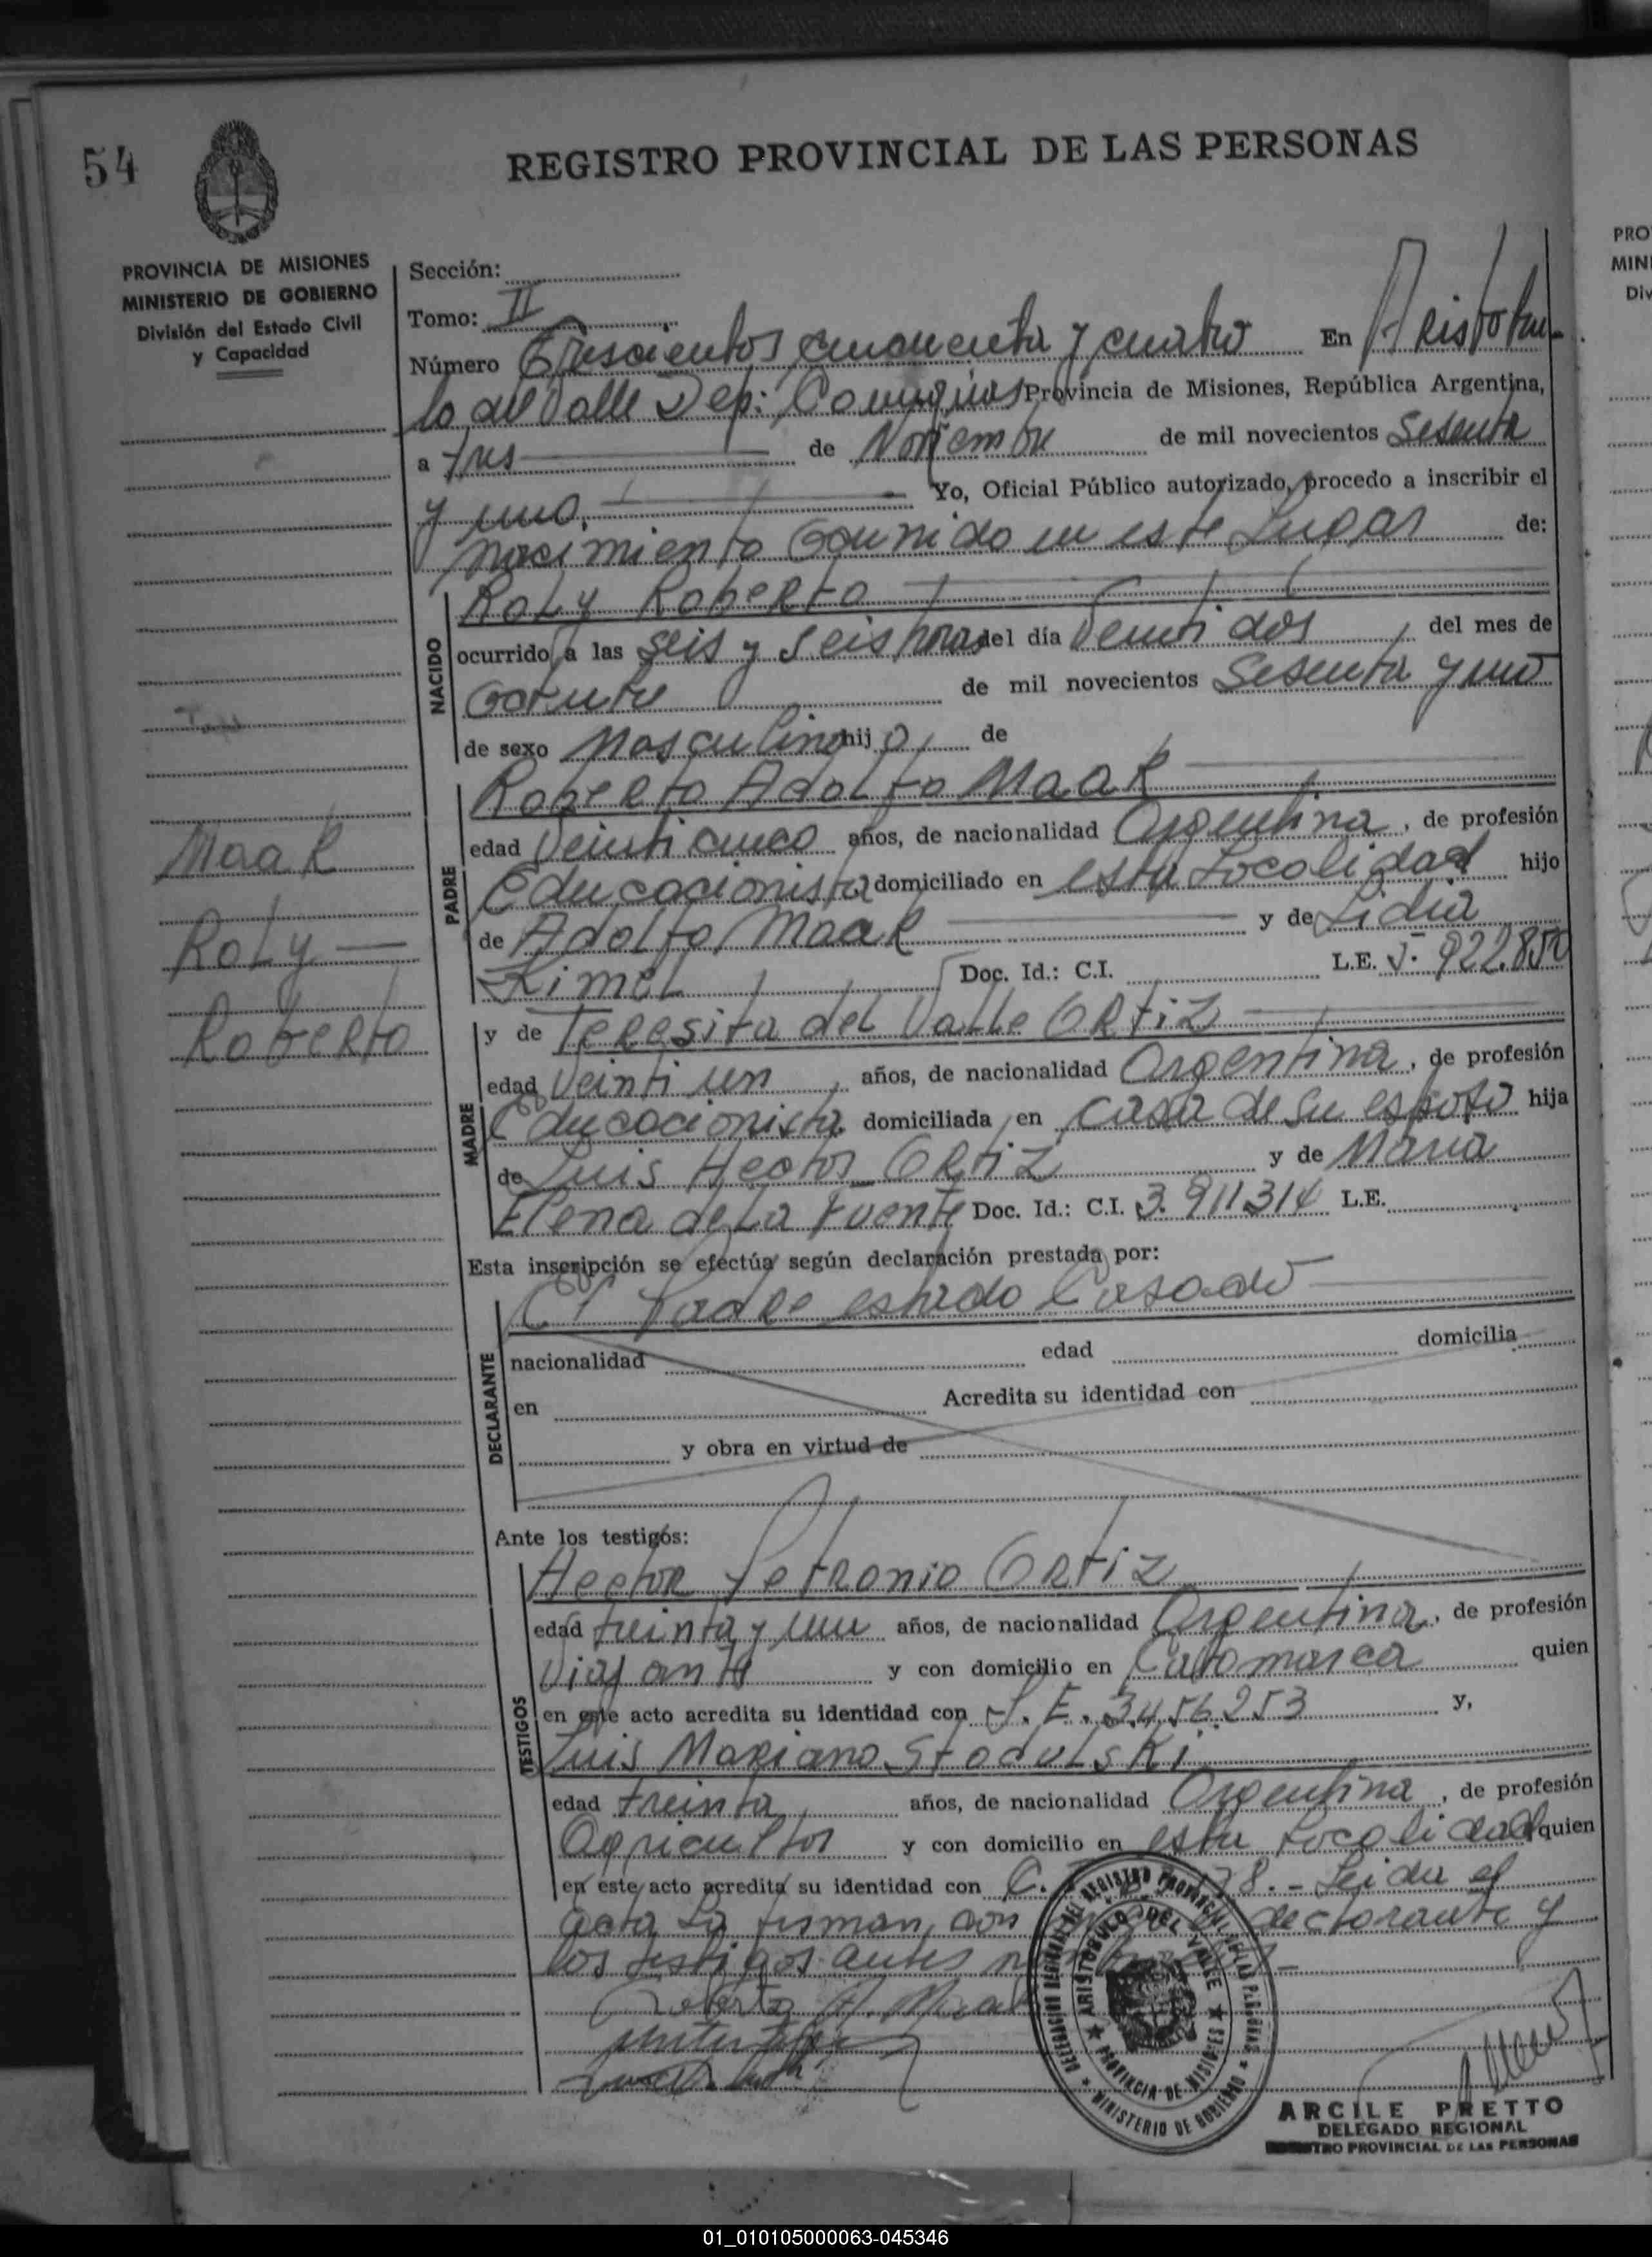 54
REGISTRO PROVINCIAL DE LAS PERSONAS
PROVINCIA DE MISIONES
MINISTERIO DE GOBIERNO
División del Estado Civil
y Capacidad
Sección:
Tomo: II
Número Trescientos cincuenta y cuatro En Aristobu-
lo del Valle Dep: Provincia de Misiones, República Argentina,
a tres de Noviembre de mil novecientos Sesenta
y uno. Yo, Oficial Público autorizado, procedo a inscribir el
nacimiento Ocurrido en este Lugar de:
NACIDO
Roly Roberto
ocurrido a las seis y seis horas del día Veinti dos del mes de
Octubre de mil novecientos Sesenta y uno
de sexo Masculino hij o de
PADRE
Roberto Adolfo Maar
edad Veinti cinco años, de nacionalidad Argentina, de profesión
Educacionista domiciliado en esta Localidad hijo
de Adolfo Maar y de Lidia
Kimel Doc. Id.: C.I. L.E. 5. 922.850
MADRE
y de Teresita del Valle Ortiz
edad Veinti un años, de nacionalidad Argentina, de profesión
Educacionista domiciliada en casa de su esposo hija
de Luis Hector Ortiz y de Maria
Elena de La Fuente Doc. Id.: C.I. 3.911314 L.E.
Esta inscripción se efectúa según declaración prestada por:
DECLARANTE
El Padre estado Casado
nacionalidad edad domicilia
en Acredita su identidad con
y obra en virtud de
Ante los testigos:
TESTIGOS
Hector Petronio Ortiz
edad treinta y un años, de nacionalidad Argentina, de profesión
Viajante y con domicilio en Catamarca quien
en este acto acredita su identidad con L.E. 3.456.253 y,
Luis Mariano Stoculski
edad treinta años, de nacionalidad Argentina, de profesión
Agricultor y con domicilio en esta Localidad quien
en este acto acredita su identidad con C. 178.- Leida el
acta La firman, con declarante y
los testigos antes
Roberto A. Maar
Maar
Roly
Roberto
DELEGACION REGIONAL DEL REGISTRO PROVINCIAL DE LAS PERSONAS
ARISTOBULO DEL VALLE
PROVINCIA DE MISIONES
MINISTERIO DE GOBIERNO
ARCILE PRETTO
DELEGADO REGIONAL
REGISTRO PROVINCIAL DE LAS PERSONAS
PRO
MINI
Div
01_010105000063-045346